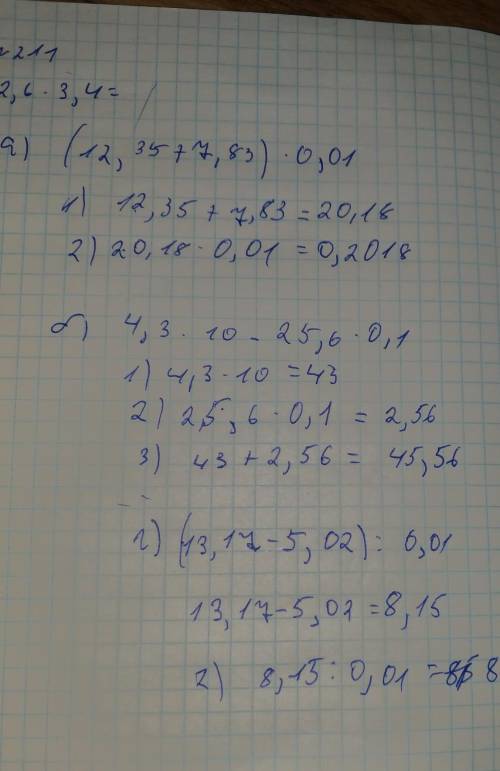 №211
2,6 · 3,4 =
а) (12,35 + 7,83) · 0,01
1) 12,35 + 7,83 = 20,18
2) 20,18 · 0,01 = 0,2018
б) 4,3 · 10 - 25,6 · 0,1
1) 4,3 · 10 = 43
2) 25,6 · 0,1 = 2,56
3) 43 + 2,56 = 45,56
г) (13,17 - 5,02) : 0,01
13,17 - 5,02 = 8,15
2) 8,15 : 0,01 = 8